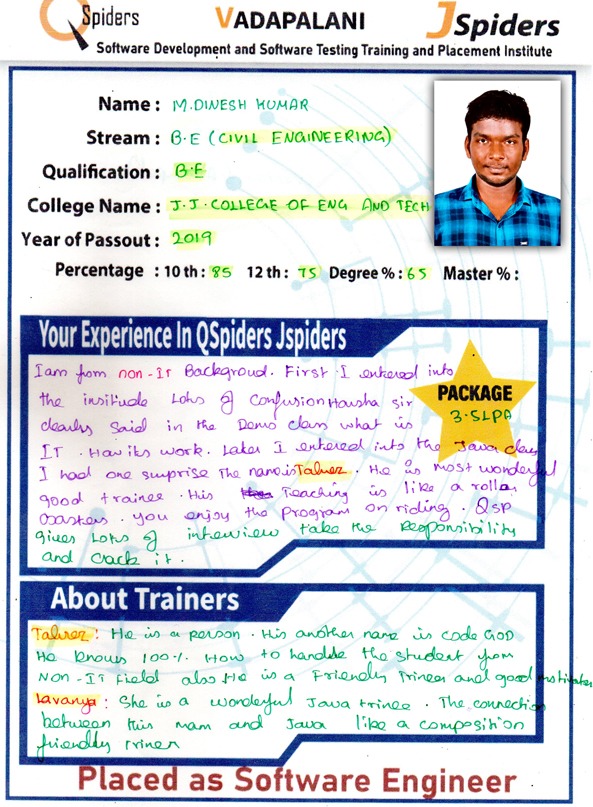 QSpiders VADAPALANI JSpiders
Software Development and Software Testing Training and Placement Institute
Name : M.DINESH KUMAR
Stream : B.E (CIVIL ENGINEERING)
Qualification : B.E
College Name : J.J.COLLEGE OF ENG AND TECH
Year of Passout : 2019
Percentage : 10 th : 85 12 th : 75 Degree % : 65 Master % :
Your Experience In QSpiders Jspiders
PACKAGE
3.5LPA
I am from non-IT Backgroud. First I entered into
the insitude Lots of Confusion Harsha sir
clearly Said in the Demo class what is
IT. How its work. Later I entered into the Java class
I had one surprise The name is Talwez. He is most wonderful
good trainee. His Teaching is like a roller
Coasters. you enjoy the program on riding. Qsp
gives Lots of interview take the Responsibility
and Crack it.
About Trainers
Talwez : He is a person. His another name is code GOD
He knows 100%. How to handle the student from
NON-IT Field also He is a Friendly Triner and good motivater
Lavanya : She is a wonderful Java trinee. The connection
between this mam and Java like a composition
friendly Triner
Placed as Software Engineer